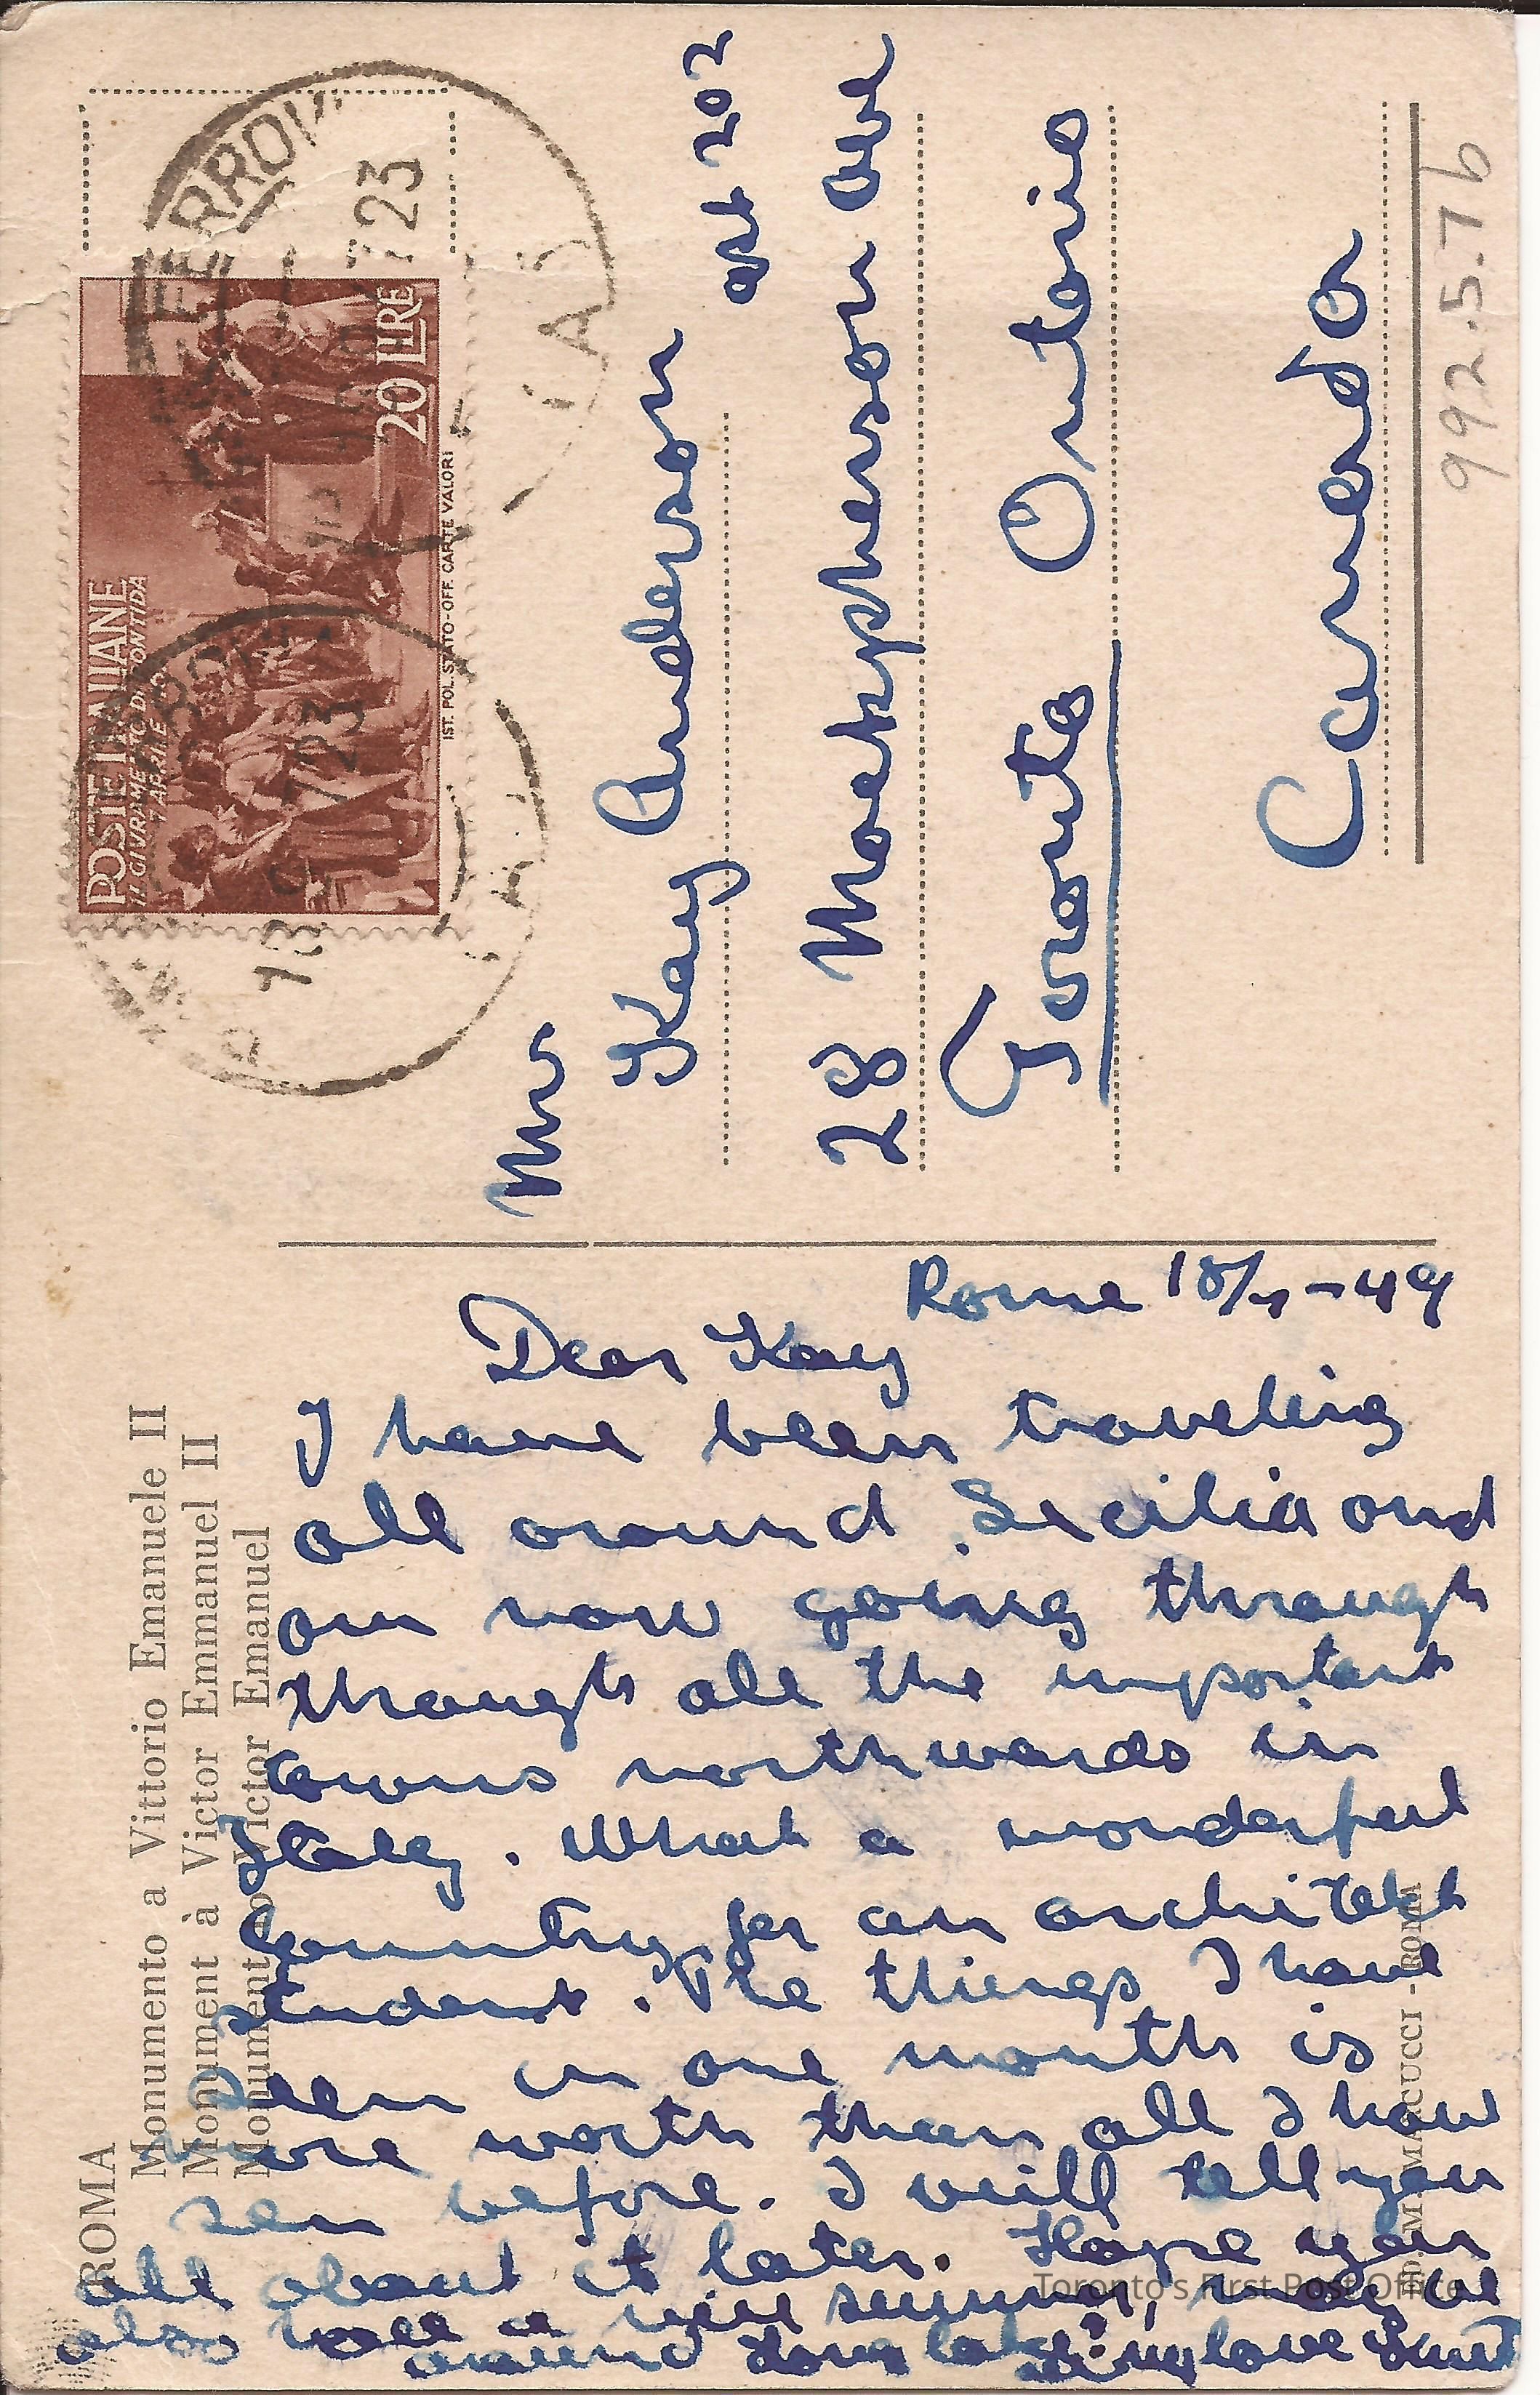 ROMA
Monumento a Vittorio Emanuele II
Monument à Victor Emmanuel II
Monument to Victor Emanuel
Rome 18/7-49
Dear Kay
I have been traveling
all around Secilia and
am now going through
through all the important
towns northwards in
Italy. What a wonderful
Country for an architekt
student. The things I have
seen in one month is
more worth than all I have
sen before. I will tell you
all about it later. Hope you
also have a nice summer,
around love
POSTE ITALIANE
IL GIURAMENTO DI PONTIDA
7 APRILE
20 LIRE
IST. POL. STATO-OFF. CARTE VALORI
FERROVIA
723
18
723
Mrs
Kay Anderson apt 202
28 Mackpherson ave
Toronto Ontario
Canada
992.5.76
MARCUCCI - ROMA
Toronto's First Post Office